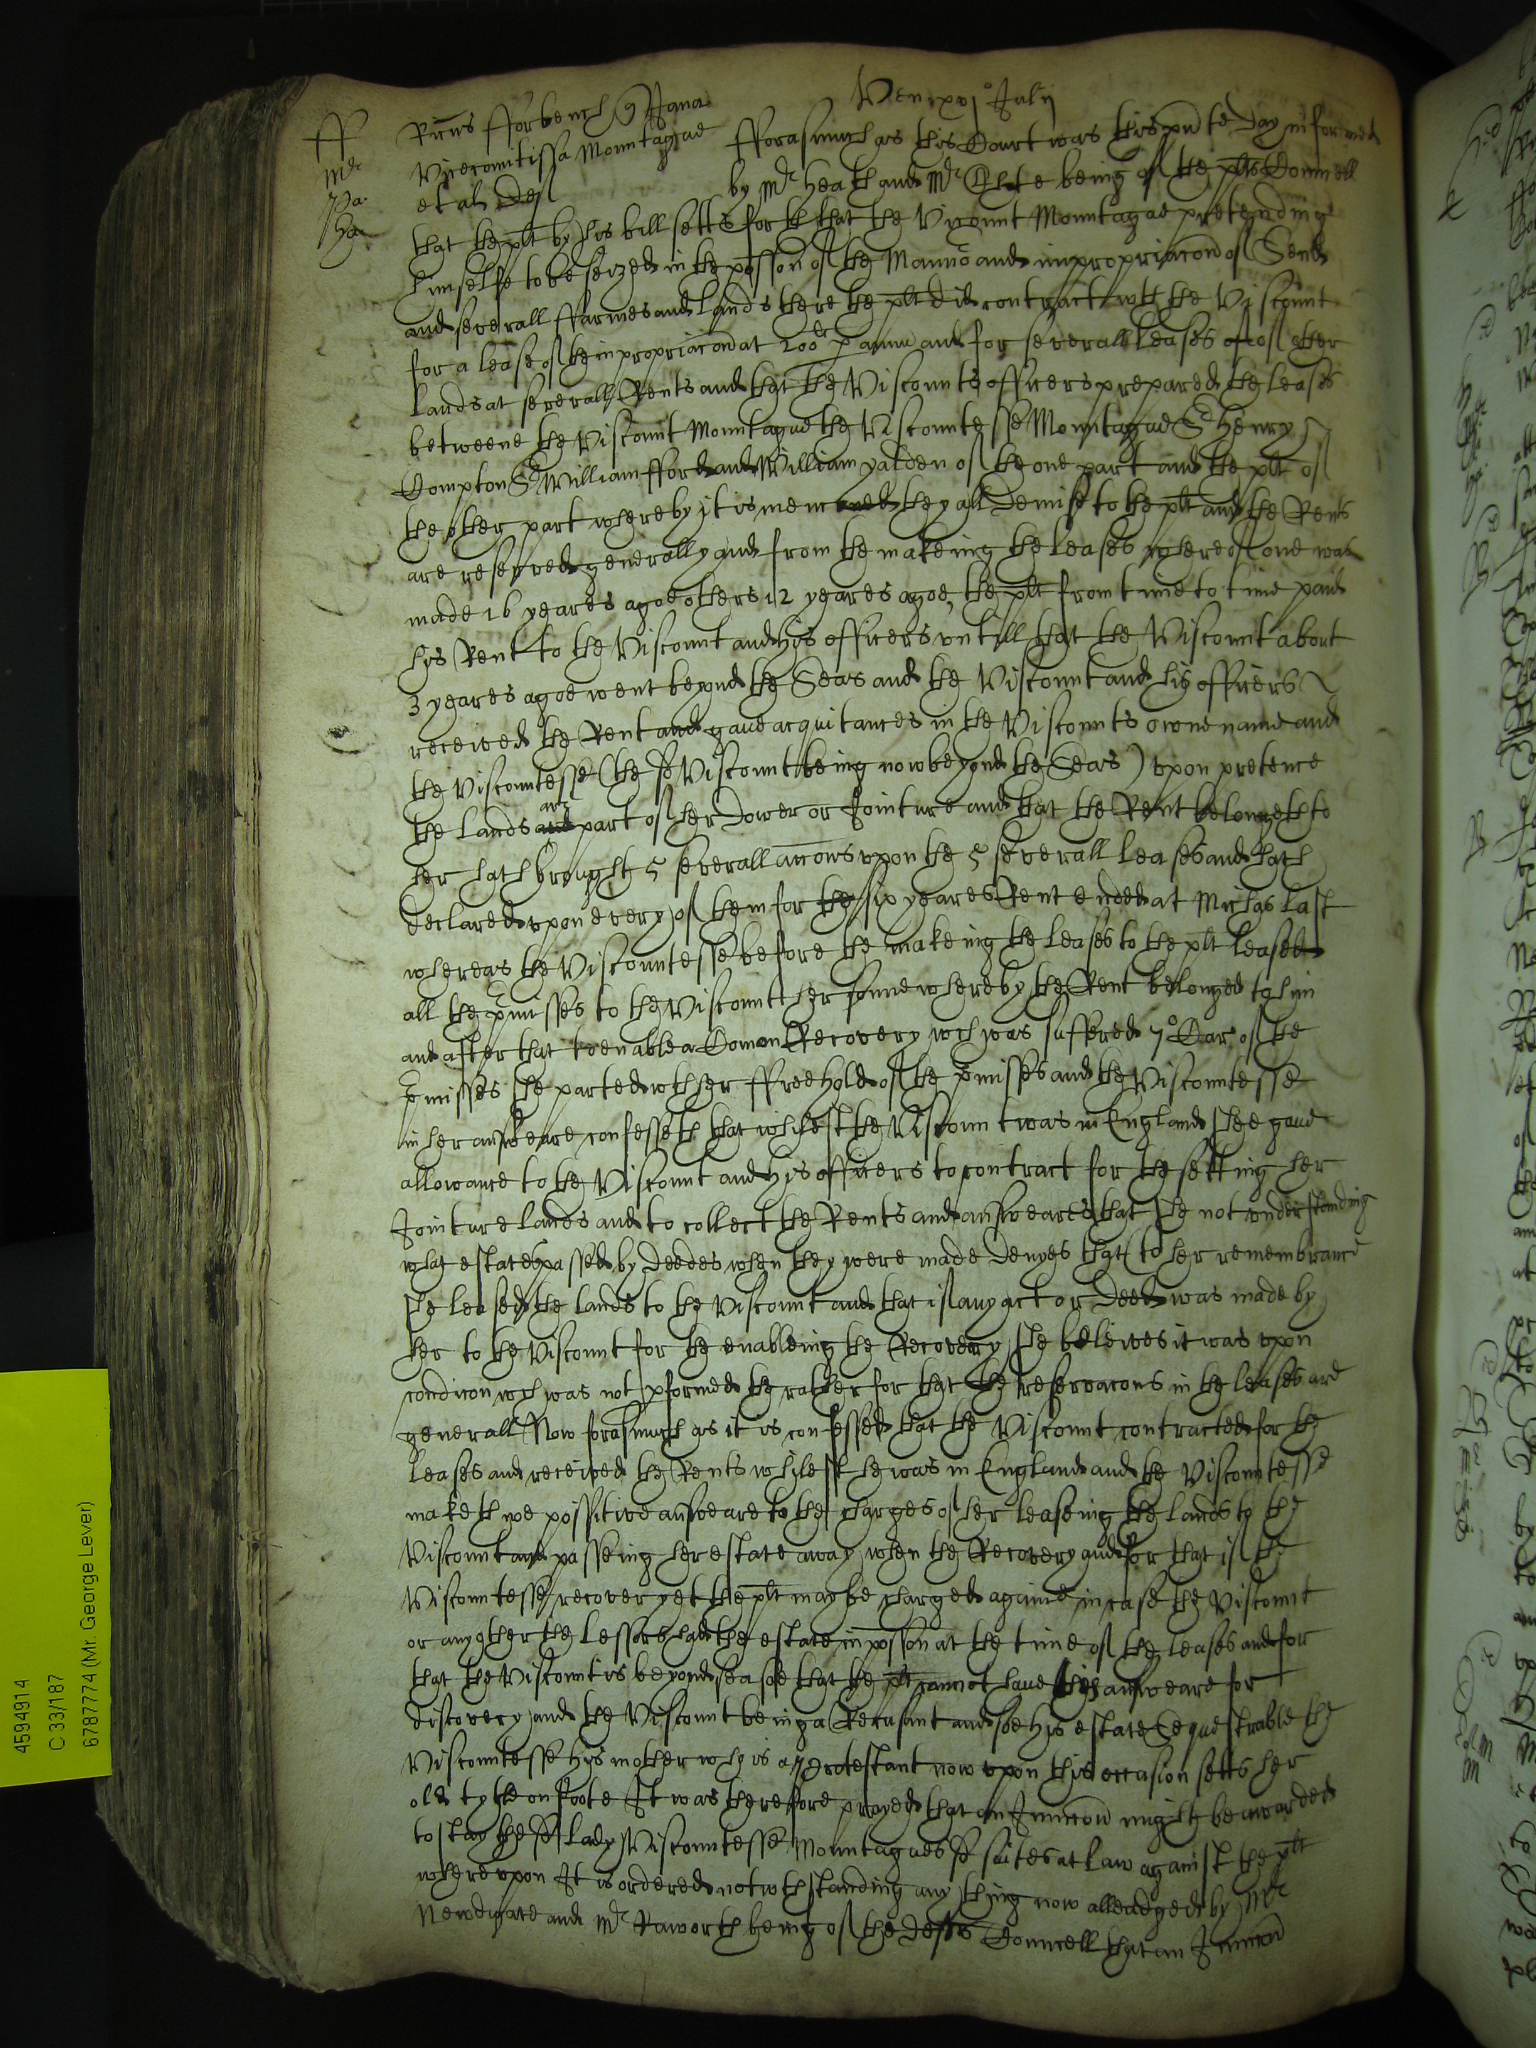 Ven xvj° Julij
ff
Mr
Pa
Ha
Ricus fforbench q Jana
Vicecomitissa Mountague
et al def
fforasmuch as this Court was this pnte Day informed
by Mr Heath and Mr Chute being of the plts Councell
that the plt by his bill setts forth that the Vicount Mountague pretending
himselfe to be seized in the possion of the Mannor and impropriacon of Send
and severall ffarmes and lands there the plt did contract wth the Viscount
for a lease of the inpropriacon at 200li p annu and for severall leases of other
lands at severall Rents and that the Viscounts officers prepared the leases
betweene the Viscount Mountague the Viscountesse Mountague Sr Henry
Compton Sr William fford and William yalden of the one part and the plt of
the other part whereby it is menconed they all Demise to the plt and the Rents
are reserved generally and from the makeing the leases whereof one was
made 16 yeares agoe others 12 yeares agoe, the plt from time to time paid
his Rent to the Viscount and his officers untill that the Viscount about
3 yeares agoe went beyond the Seas and the Viscount and his officers
received the Rent and gave acquitances in the Viscounts owne name and
the Viscountesse (the sd Viscount being now beyond the Seas) upon pretence
the lands are part of her Dower or Jointure and that the Rent belongeth to
her hath brought 5 severall accons upon the 5 severall leases and hath
declared upon every of them for the six yeares Rent ended at Michas last
whereas the Viscountesse before the makeing the leases to the plt leased
all the pmisses to the Viscount her sonne whereby the Rent belonged to him
and after that to enable a Comon Recovery wch was suffered 7° Car of the
pmisses she parted wth her ffreehold of the pmisses and the Viscountesse
in her answeare confesseth that whilest the Viscount was in England shee gave
allowance to the Viscount and his officers to contract for the setting her
Jointure lands and to collect the Rents and answeares that she not understanding
what estate passed by deedes when they were made denyes that (to her remembrance
she leased the lands to the Viscount and that if any act or Deed was made by
her to the Viscount for the enableing the Recovery she beleives it was upon
condicon wch was not pformed the rather for that the reservacons in the leases are
generall Now forasmuch as it is confessed that the Viscount contracted for the
leases and received the Rents whilest he was in England and the Viscountesse
maketh noe possitive answeare to the charges of her leaseing the lands to the
Viscount and passeing her estate away when the Recovery and for that if the
Viscountesse recover yet the plt may be charged againe in case the Viscount
or any other the lessors had the estate in possion at the time of the leases and for
that the Viscount is beyond sea soe that the plt cannot have his answeare for
discovery and the Viscount being a Recusant and soe his estate Sequestrable the
Viscountesse his mother who is a Protestant now upon this occasion setts her
old tytle on foote It was therefore prayed that an Junccon might be awarded
to stay the sd lady Viscountesse Mountagues sd suites at Law against the plt
whereupon It is ordered notwthstanding any thing now alleadged by Mr
Newdigate and Mr Raworth being of the defts Councell that an Junccon
4594914
C 33/187
6787774 (Mr. George Lever)